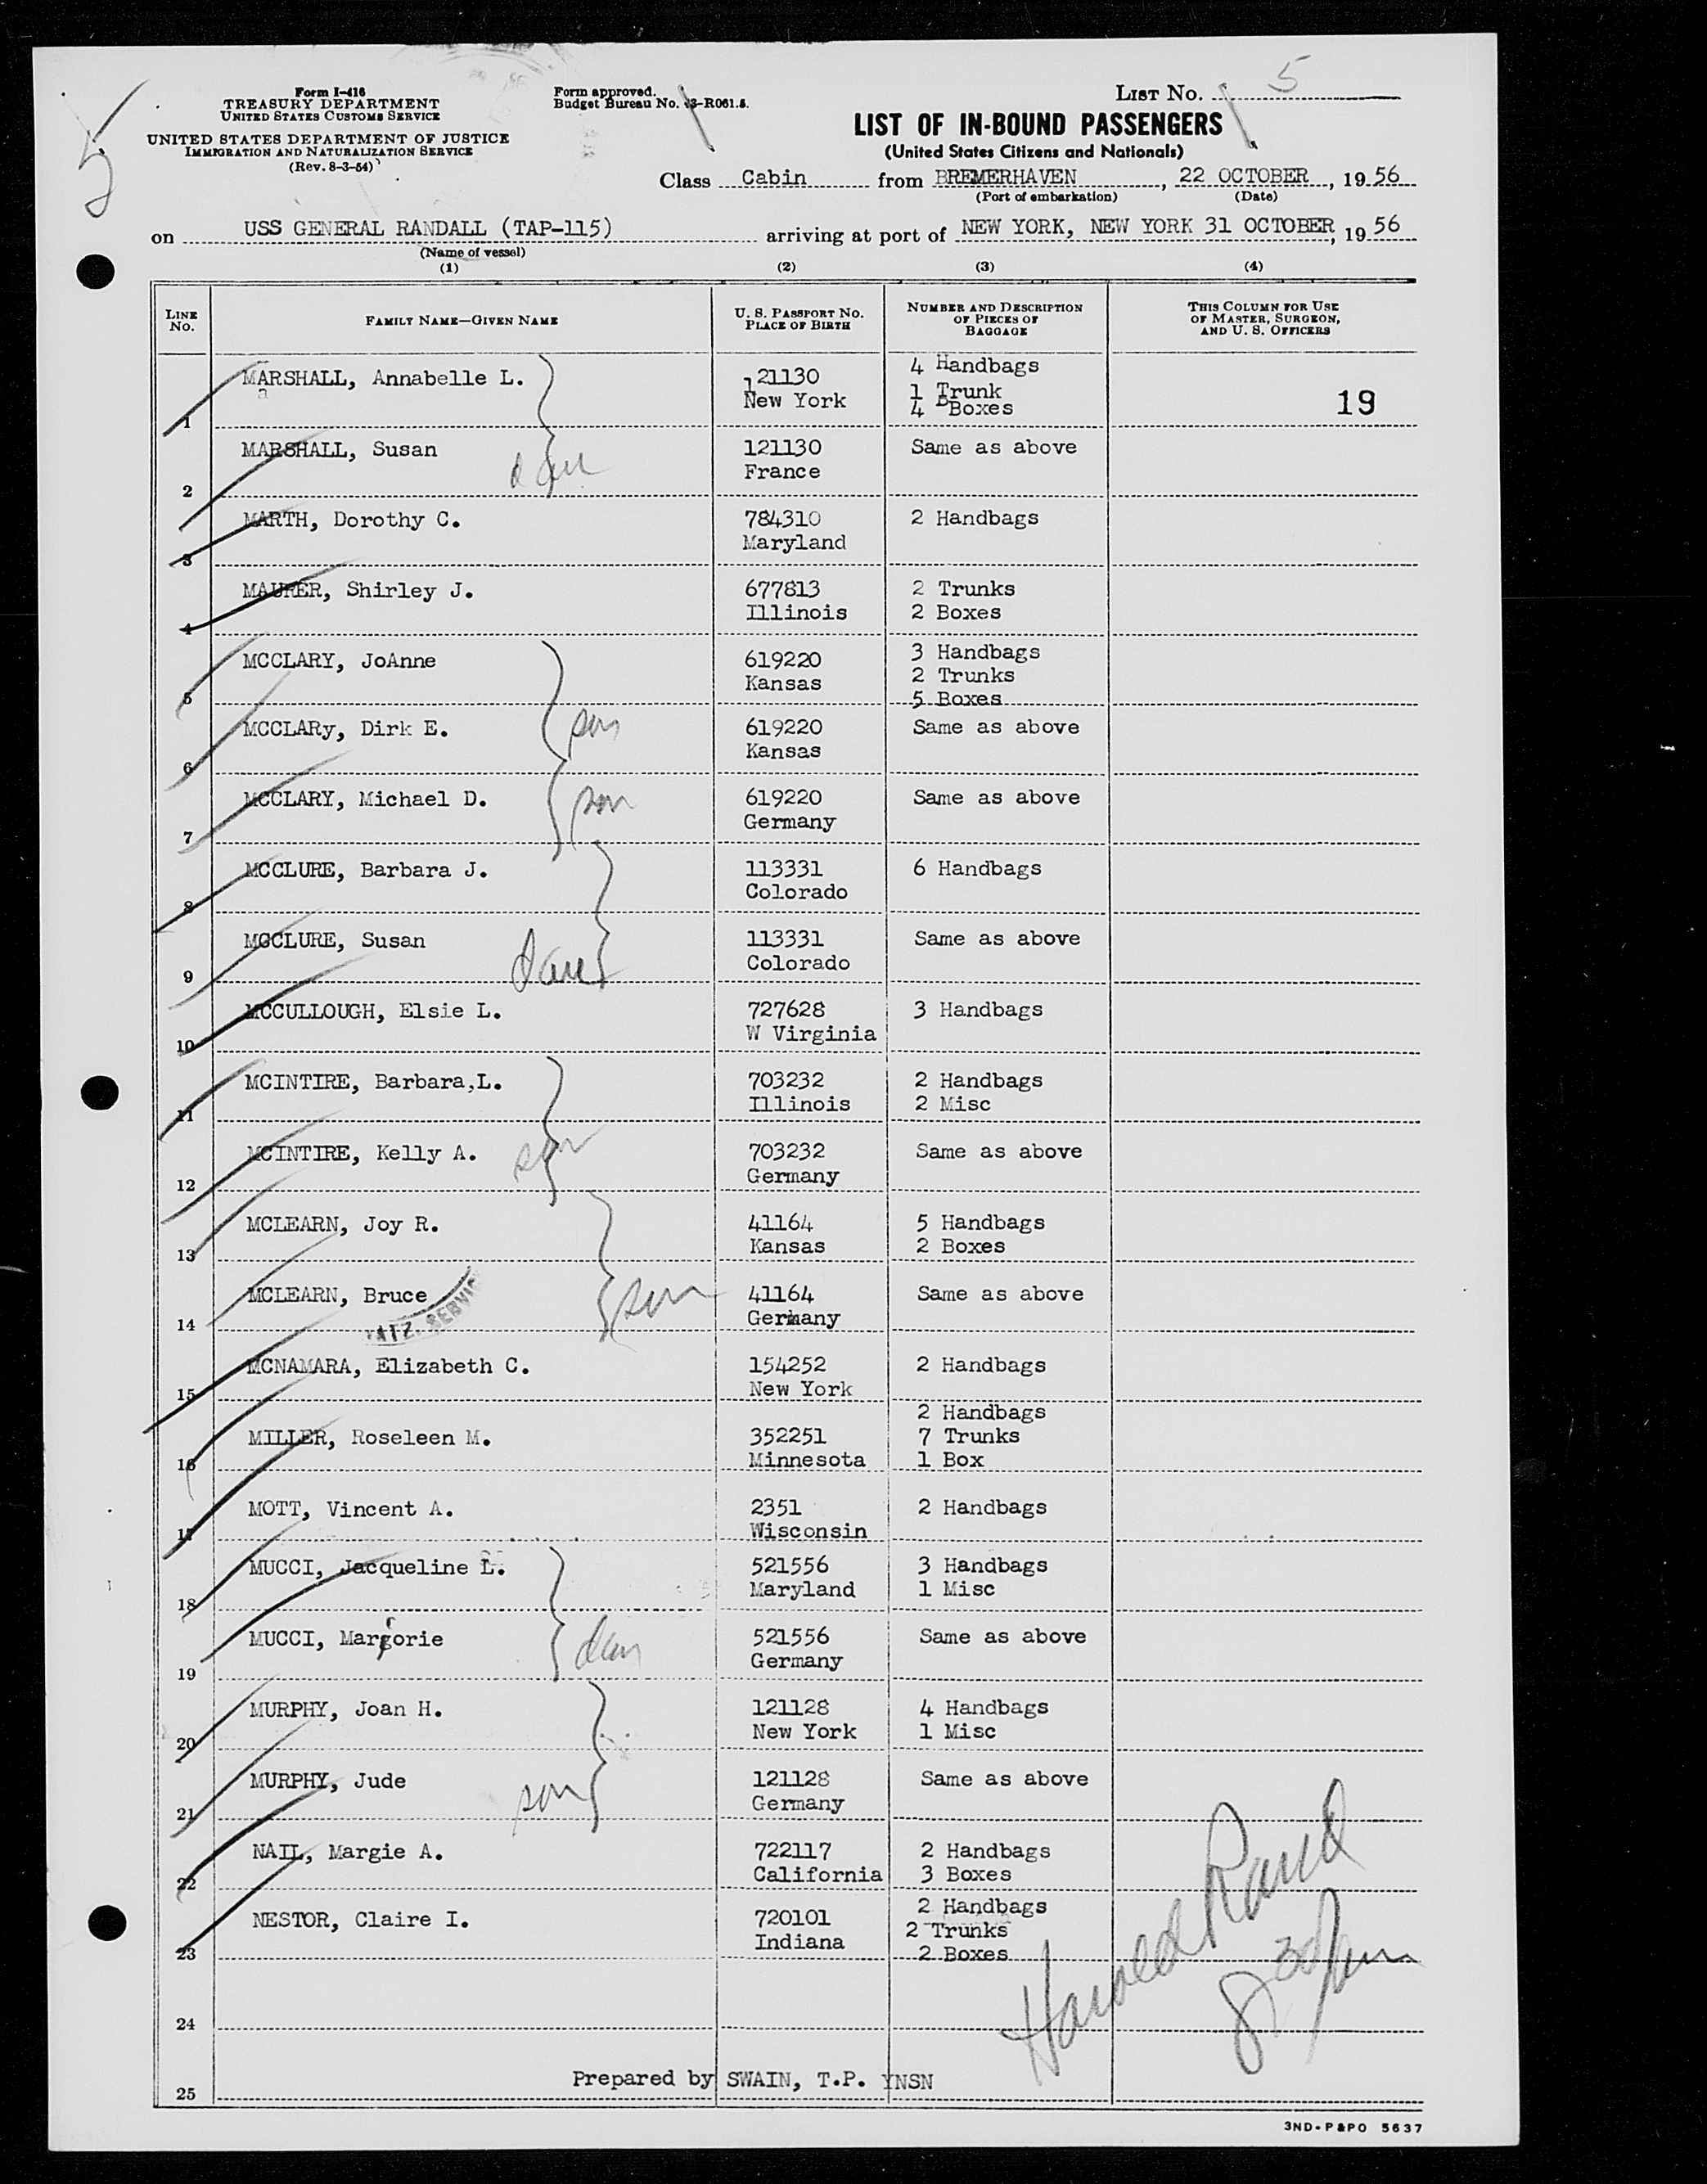 5
Form I-416
TREASURY DEPARTMENT
UNITED STATES CUSTOMS SERVICE
UNITED STATES DEPARTMENT OF JUSTICE
IMMIGRATION AND NATURALIZATION SERVICE
(Rev. 8-3-54)
Form approved.
Budget Bureau No. 43-R061.5.
LIST No. 5
LIST OF IN-BOUND PASSENGERS
(United States Citizens and Nationals)
Class Cabin from BREMERHAVEN, 22 OCTOBER, 19 56
(Port of embarkation) (Date)
on USS GENERAL RANDALL (TAP-115) arriving at port of NEW YORK, NEW YORK 31 OCTOBER, 19 56
(Name of vessel)
(1) (2) (3) (4)
LINE No. FAMILY NAME—GIVEN NAME U. S. PASSPORT No. PLACE OF BIRTH NUMBER AND DESCRIPTION OF PIECES OF BAGGAGE THIS COLUMN FOR USE OF MASTER, SURGEON, AND U. S. OFFICERS
1 MARSHALL, Annabelle L. 121130 New York 4 Handbags 1 Trunk 4 Boxes 19
2 MARSHALL, Susan dau 121130 France Same as above
3 MARTH, Dorothy C. 784310 Maryland 2 Handbags
4 MAURER, Shirley J. 677813 Illinois 2 Trunks 2 Boxes
5 MCCLARY, JoAnne 619220 Kansas 3 Handbags 2 Trunks 5 Boxes
6 MCCLARy, Dirk E. son 619220 Kansas Same as above
7 MCCLARY, Michael D. son 619220 Germany Same as above
8 MCCLURE, Barbara J. 113331 Colorado 6 Handbags
9 MCCLURE, Susan dau 113331 Colorado Same as above
10 MCCULLOUGH, Elsie L. 727628 W Virginia 3 Handbags
11 MCINTIRE, Barbara,L. 703232 Illinois 2 Handbags 2 Misc
12 MCINTIRE, Kelly A. son 703232 Germany Same as above
13 MCLEARN, Joy R. 41164 Kansas 5 Handbags 2 Boxes
14 MCLEARN, Bruce son 41164 Germany Same as above
15 MCNAMARA, Elizabeth C. 154252 New York 2 Handbags
16 MILLER, Roseleen M. 352251 Minnesota 2 Handbags 7 Trunks 1 Box
17 MOTT, Vincent A. 2351 Wisconsin 2 Handbags
18 MUCCI, Jacqueline L. 521556 Maryland 3 Handbags 1 Misc
19 MUCCI, Marjorie dau 521556 Germany Same as above
20 MURPHY, Joan H. 121128 New York 4 Handbags 1 Misc
21 MURPHY, Jude son 121128 Germany Same as above
22 NAIL, Margie A. 722117 California 2 Handbags 3 Boxes
23 NESTOR, Claire I. 720101 Indiana 2 Handbags 2 Trunks 2 Boxes
Harold Rand
24
25 Prepared by SWAIN, T.P. YNSN
3ND-P&PO 5637